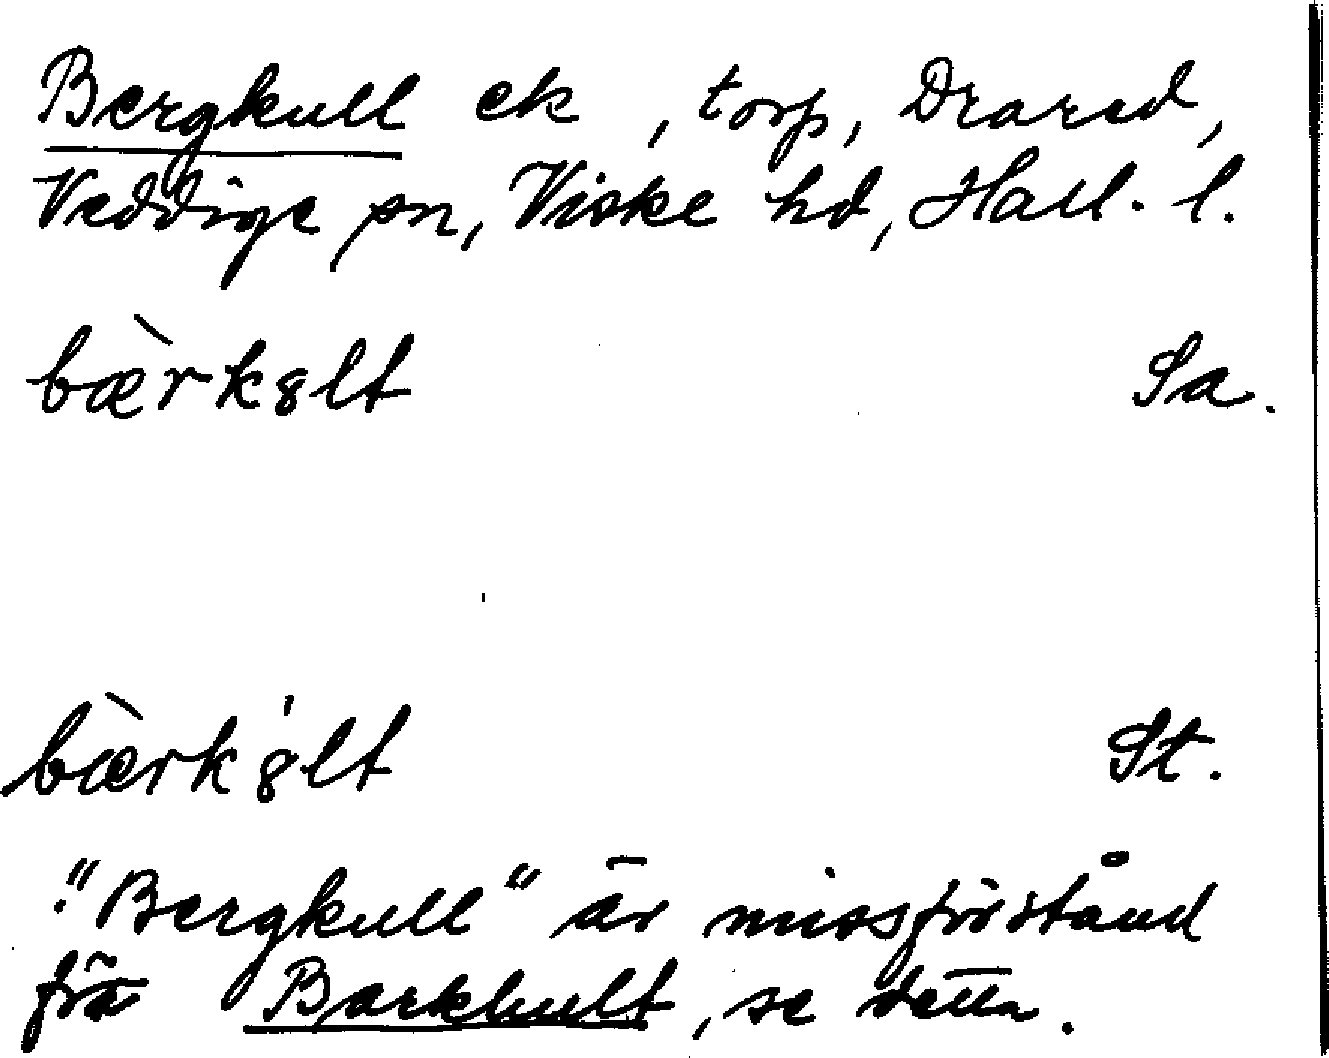 Bergkull ek , torp, Drared,
Veddige sn, Viske hd, Hall. l.
bæ̀rk8lt Sa.
bæ̀rk'8lt St.
"Bergkull" är missförstånd
för Barkhult, se detta.